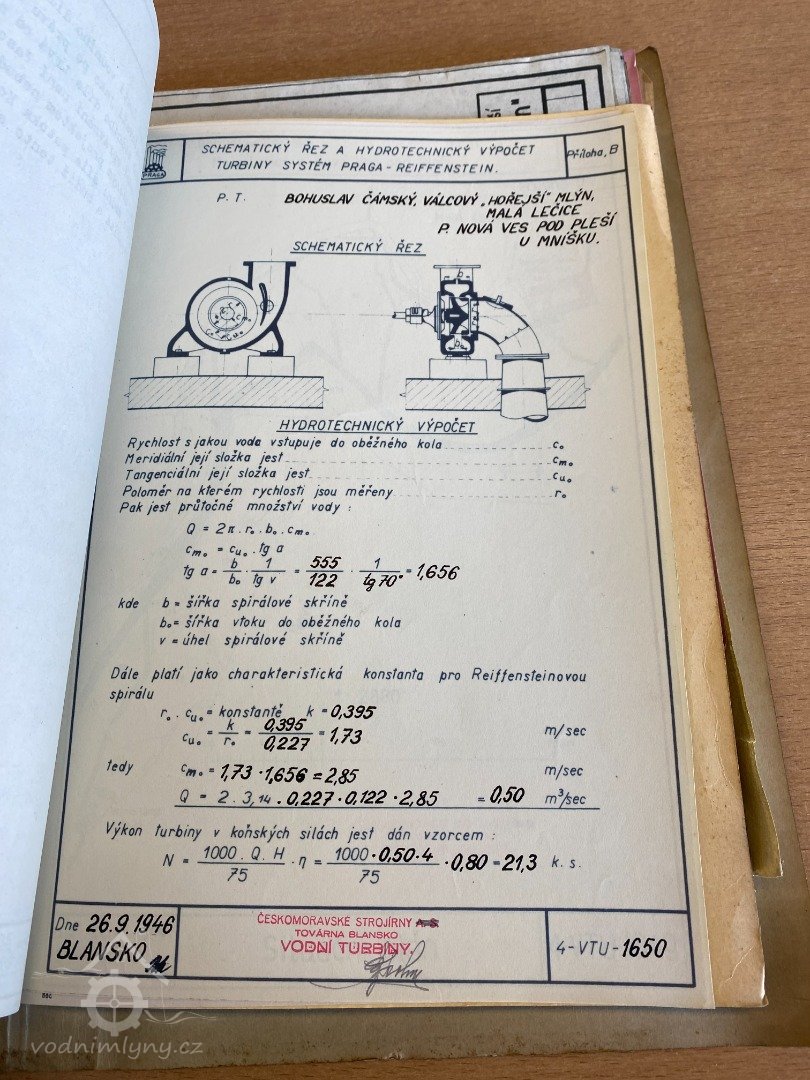 PRAGA
SCHEMATICKÝ ŘEZ A HYDROTECHNICKÝ VÝPOČET
TURBINY SYSTÉM PRAGA-REIFFENSTEIN.
Příloha, B
P. T. BOHUSLAV ČÁMSKÝ, VÁLCOVÝ „HOŘEJŠÍ" MLÝN,
MALÁ LEČICE
P. NOVÁ VES POD PLEŠÍ
U MNÍŠKU.
SCHEMATICKÝ ŘEZ
HYDROTECHNICKÝ VÝPOČET
Rychlost s jakou voda vstupuje do oběžného kola c₀
Meridiální její složka jest cm₀
Tangenciální její složka jest cu₀
Poloměr na kterém rychlosti jsou měřeny r₀
Pak jest průtočné množství vody :
Q = 2π . r₀ . b₀ . cm₀
cm₀ = cu₀ . tg a
tg a = b/b₀ · 1/tg v = 555/122 · 1/tg 70° = 1,656
kde b = šířka spirálové skříně
b₀ = šířka vtoku do oběžného kola
v = úhel spirálové skříně
Dále platí jako charakteristická konstanta pro Reiffensteinovou
spirálu
r₀ . cu₀ = konstantě k = 0,395
cu₀ = k/r₀ = 0,395/0,227 = 1,73 m/sec
tedy cm₀ = 1,73 · 1,656 = 2,85 m/sec
Q = 2 . 3,14 . 0,227 · 0,122 · 2,85 = 0,50 m³/sec
Výkon turbiny v koňských silách jest dán vzorcem :
N = 1000 . Q . H/75 · η = 1000 · 0,50 · 4/75 · 0,80 = 21,3 k. s.
Dne 26.9.1946
BLANSKO
ČESKOMORAVSKÉ STROJÍRNY
TOVÁRNA BLANSKO
VODNÍ TURBINY.
4-VTU-1650
vodnimlyny.cz